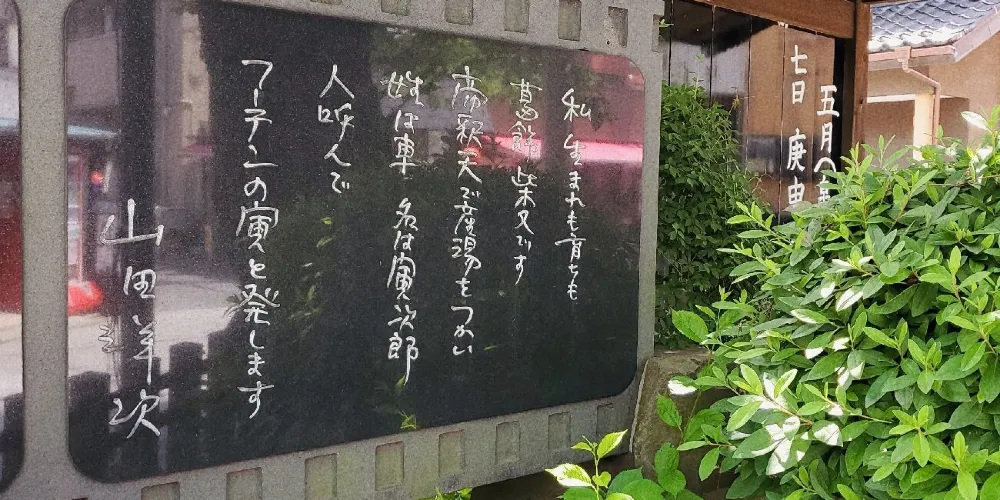 私 生まれも育ちも
葛飾柴又です
帝釈天で産湯をつかい
姓は車 名は寅次郎
人呼んで
フーテンの寅と発します
山田洋次
五月八
七日 庚申